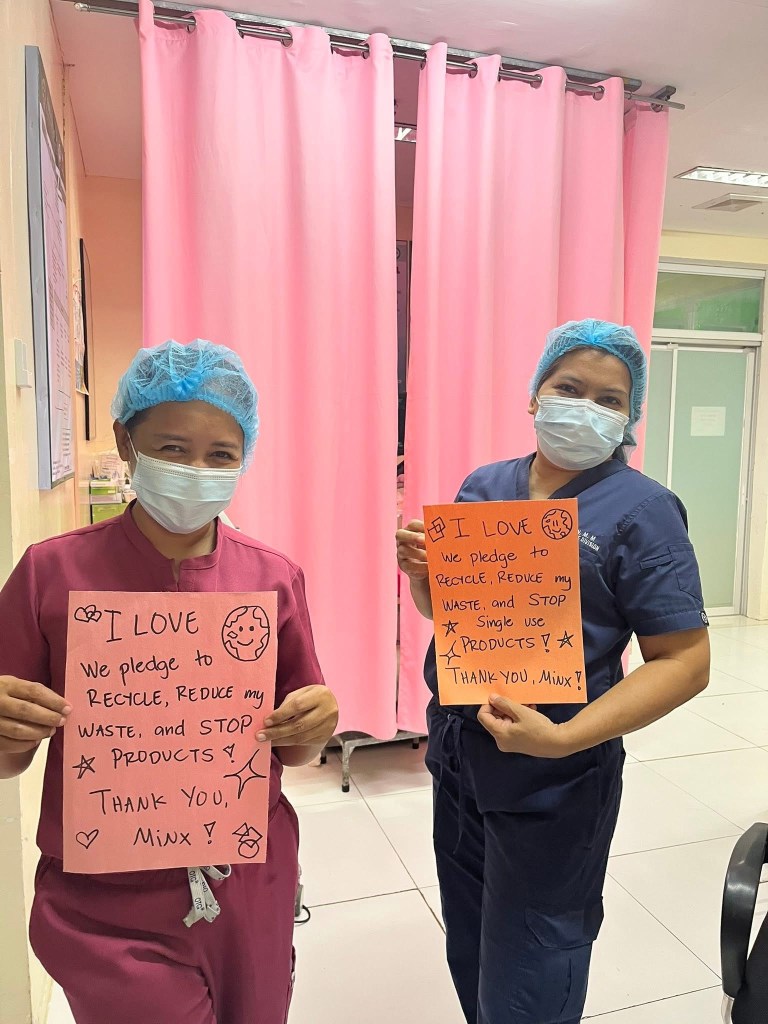 I LOVE
We pledge to
RECYCLE, REDUCE my
WASTE, and STOP
PRODUCTS!
THANK YOU,
MINX!
I LOVE
We pledge to
RECYCLE, REDUCE my
WASTE, and STOP
Single use
PRODUCTS!
THANK YOU, MINX!
DIVISION